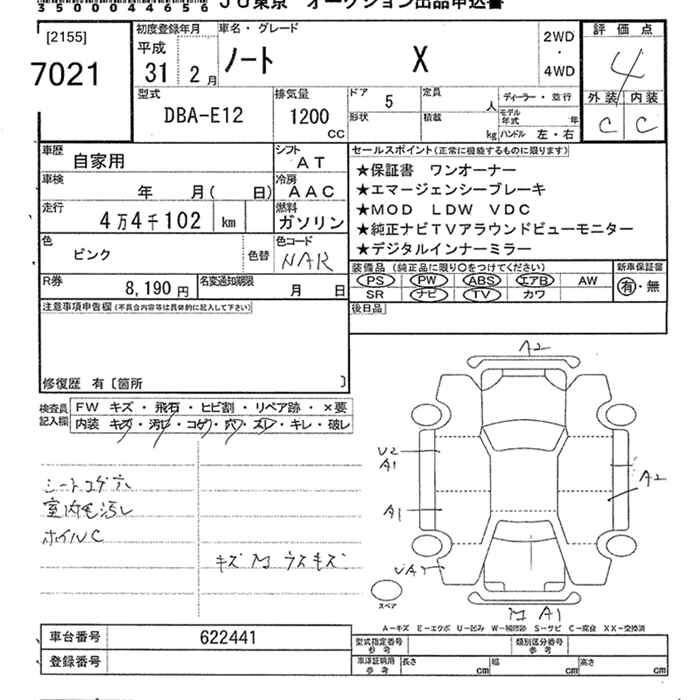 350004465
JU東京 オークション出品申込書
[2155]
7021
初度登録年月
平成
31 2月
車名・グレード
ノート X
2WD
・
4WD
評価点
4
外装 内装
C C
型式
DBA-E12
排気量
1200
CC
ドア 5
形状
定員 人
積載 kg
ディーラー・並行
モデル年式 年
ハンドル 左・右
車歴
自家用
シフト
AT
車検
年 月( 日)
冷房
AAC
走行
4万4千102 km
燃料
ガソリン
色
ピンク
色替
色コード
NAR
R券
8,190円
名変通知期限
月 日
セールスポイント(正常に機能するものに限ります)
★保証書 ワンオーナー
★エマージェンシーブレーキ
★MOD LDW VDC
★純正ナビTVアラウンドビューモニター
★デジタルインナーミラー
装備品 (純正品に限り○をつけてください)
PS PW ABS エアB AW
SR ナビ TV カワ
新車保証書
有・無
後日品
注意事項申告欄(不具合内容等は具体的に記入して下さい)
修復歴 有〔箇所 〕
検査員記入欄
FW キズ・飛石・ヒビ割・リペア跡・×要
内装 キズ・汚レ・コゲ・穴・スレ・キレ・破レ
シートコゲ穴
室内毛汚レ
ホイルC
キズ M ウスキズ
A2
U2
A1
A1
A2
UA1
M A1
スペア
A-キズ E-エクボ U-凹み W-補修跡 S-サビ C-腐食 XX-交換済
車台番号 622441
登録番号
型式指定番号 参考
類別区分番号 参考
車庫証明用 参考
長さ cm 幅 cm 高さ cm